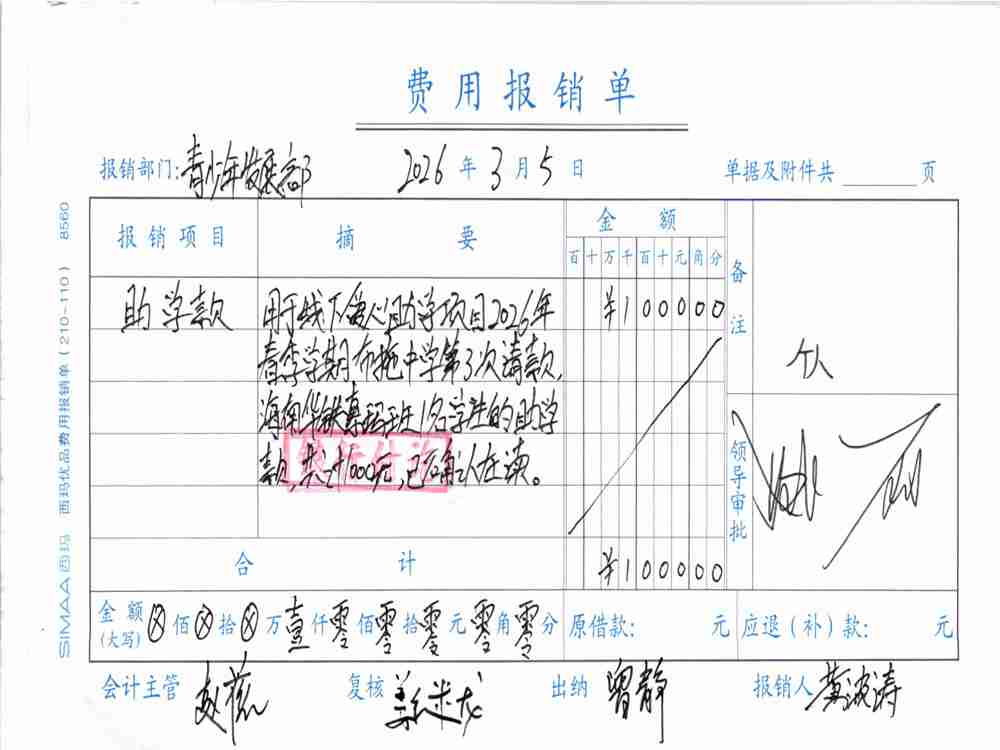 费用报销单
报销部门:青少年发展部 2026年3月5日 单据及附件共 页
报销项目 摘要 金额 备注
百十万千百十元角分
助学款 用于线下爱心助学项目2026年 ¥100000
春季学期布拖中学第3次请款,
个人
海南 班1名学生的助学
款,共计1000元,已确认在读。
银行付讫
领导审批
合计 ¥100000
金额(大写) ⊗佰⊗拾⊗万壹仟零佰零拾零元零角零分 原借款: 元 应退(补)款: 元
会计主管 赵 复核 姜米龙 出纳 曾静 报销人 黄波涛
SIMAA西玛 西玛优品费用报销单(210-110) 8560